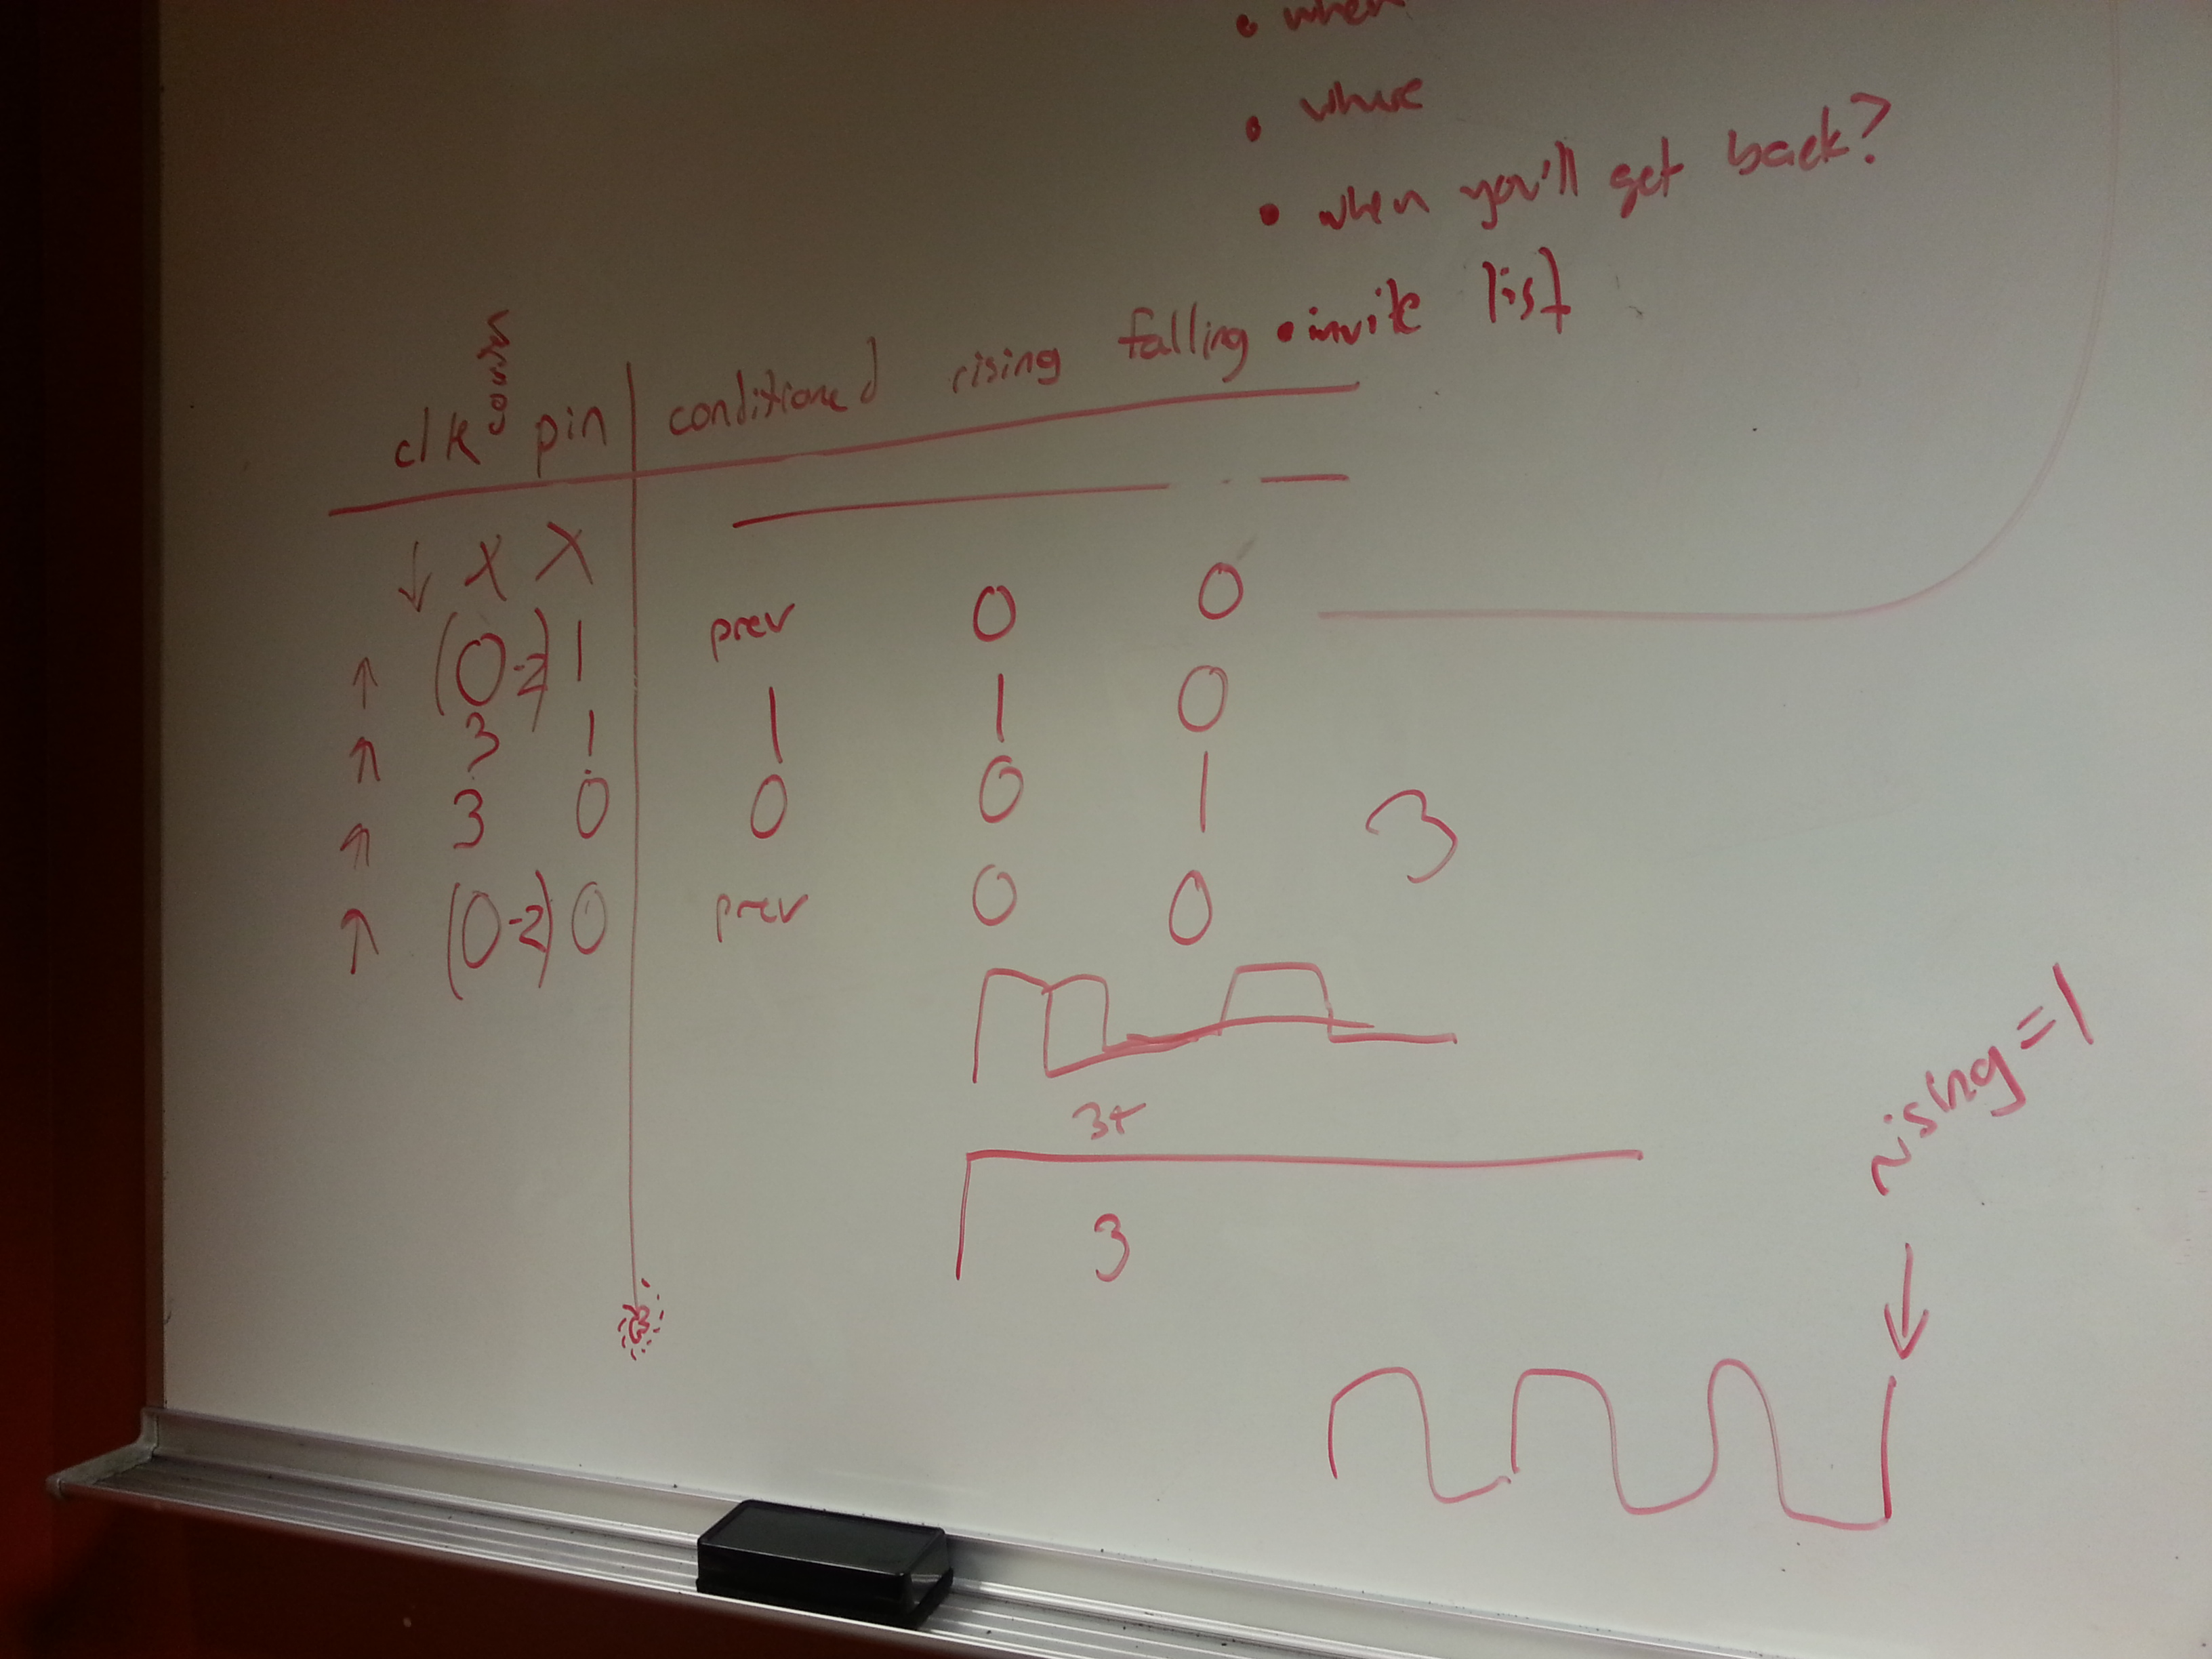 • when
• where
• when you'll get back?
• invite list
clk pin conditioned rising falling
↓ X X
↑ (0-2) 1 prev 0 0
↑ 3 1 1 1 0
↑ 3 0 0 0 1
↑ (0-2) 0 prev 0 0
3
3+
3
rising=1